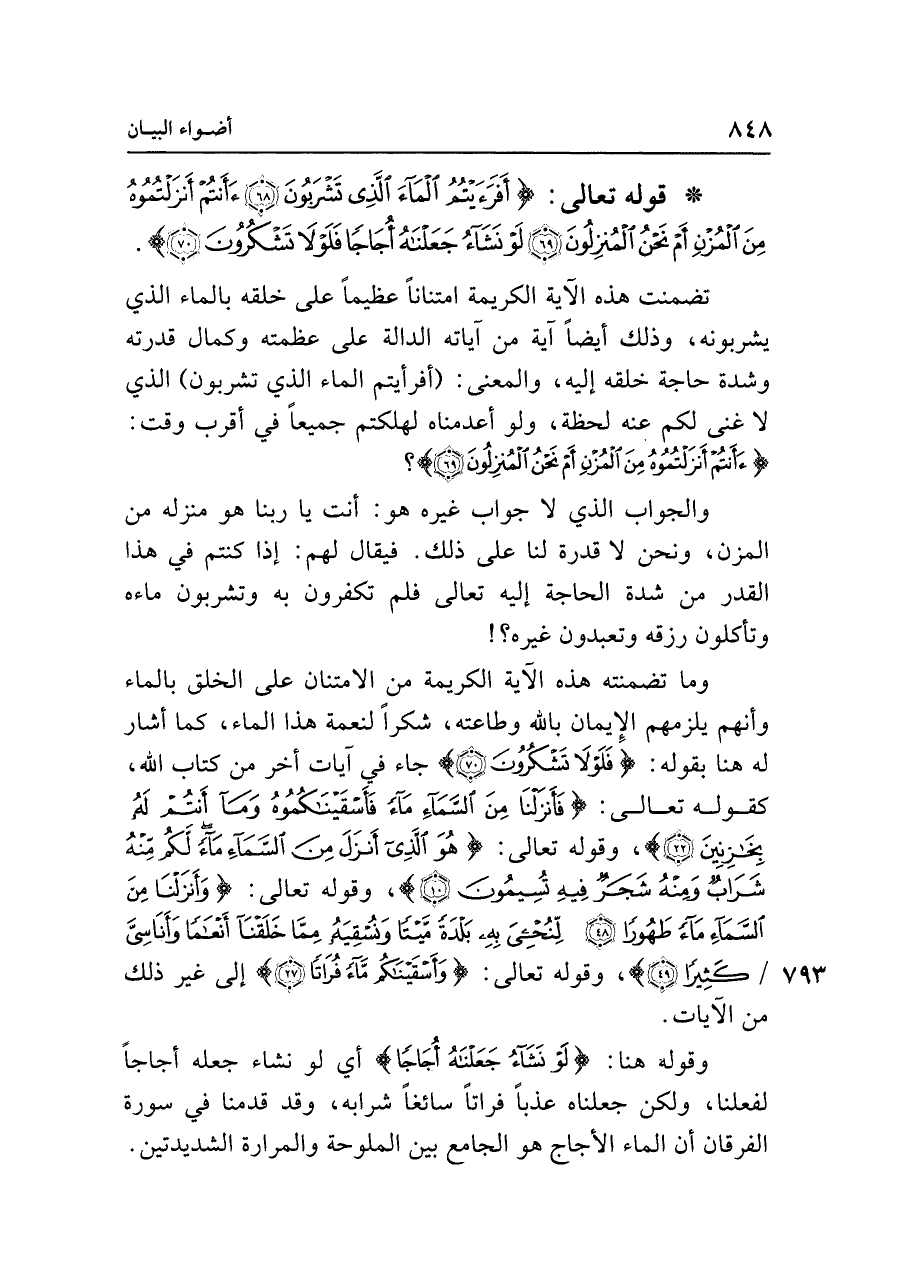 ٨٤٨ أضـواء البيـان
* قوله تعالى: ﴿ أَفَرَءَيْتُمُ ٱلْمَآءَ ٱلَّذِى تَشْرَبُونَ ۝٦٨ ءَأَنتُمْ أَنزَلْتُمُوهُ
مِنَ ٱلْمُزْنِ أَمْ نَحْنُ ٱلْمُنزِلُونَ ۝٦٩ لَوْ نَشَآءُ جَعَلْنَٰهُ أُجَاجًا فَلَوْلَا تَشْكُرُونَ ۝٧٠﴾ .
تضمنت هذه الآية الكريمة امتناناً عظيماً على خلقه بالماء الذي
يشربونه، وذلك أيضاً آية من آياته الدالة على عظمته وكمال قدرته
وشدة حاجة خلقه إليه، والمعنى: (أفرأيتم الماء الذي تشربون) الذي
لا غنى لكم عنه لحظة، ولو أعدمناه لهلكتم جميعاً في أقرب وقت:
﴿ ءَأَنتُمْ أَنزَلْتُمُوهُ مِنَ ٱلْمُزْنِ أَمْ نَحْنُ ٱلْمُنزِلُونَ ۝٦٩﴾؟
والجواب الذي لا جواب غيره هو: أنت يا ربنا هو منزله من
المزن، ونحن لا قدرة لنا على ذلك. فيقال لهم: إذا كنتم في هذا
القدر من شدة الحاجة إليه تعالى فلم تكفرون به وتشربون ماءه
وتأكلون رزقه وتعبدون غيره؟!
وما تضمنته هذه الآية الكريمة من الامتنان على الخلق بالماء
وأنهم يلزمهم الإيمان بالله وطاعته، شكراً لنعمة هذا الماء، كما أشار
له هنا بقوله: ﴿ فَلَوْلَا تَشْكُرُونَ ۝٧٠﴾ جاء في آيات أخر من كتاب الله،
كقـولـه تعـالـى: ﴿ فَأَنزَلْنَا مِنَ السَّمَآءِ مَآءً فَأَسْقَيْنَٰكُمُوهُ وَمَآ أَنتُمْ لَهُ
بِخَٰزِنِينَ ۝٢٢﴾، وقوله تعالى: ﴿ هُوَ ٱلَّذِىٓ أَنزَلَ مِنَ ٱلسَّمَآءِ مَآءً ۖ لَّكُم مِّنْهُ
شَرَابٌ وَمِنْهُ شَجَرٌ فِيهِ تُسِيمُونَ ۝١٠﴾، وقوله تعالى: ﴿ وَأَنزَلْنَا مِنَ
ٱلسَّمَآءِ مَآءً طَهُورًا ۝٤٨ لِّنُحْـِۧىَ بِهِۦ بَلْدَةً مَّيْتًا وَنُسْقِيَهُۥ مِمَّا خَلَقْنَآ أَنْعَٰمًا وَأَنَاسِىَّ
٧٩٣ / كَثِيرًا ۝٤٩﴾، وقوله تعالى: ﴿ وَأَسْقَيْنَٰكُم مَّآءً فُرَاتًا ۝٢٧﴾ إلى غير ذلك
من الآيات.
وقوله هنا: ﴿ لَوْ نَشَآءُ جَعَلْنَٰهُ أُجَاجًا﴾ أي لو نشاء جعله أجاجاً
لفعلنا، ولكن جعلناه عذباً فراتاً سائغاً شرابه، وقد قدمنا في سورة
الفرقان أن الماء الأجاج هو الجامع بين الملوحة والمرارة الشديدتين.